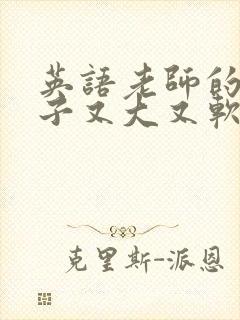 英語老師的
子又大又軟
克里斯-派恩